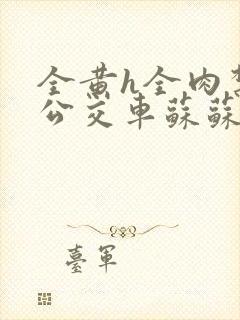 全黄h全肉
公交车蘇蘇
臺軍